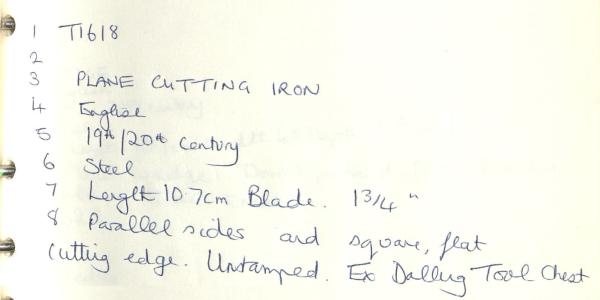 1 T1618
2
3 PLANE CUTTING IRON
4 English
5 19th/20th Century
6 Steel
7 Length 10.7cm Blade. 1 3/4"
8 Parallel sides and square, flat
cutting edge. Unstamped. Ex Dalling Tool Chest